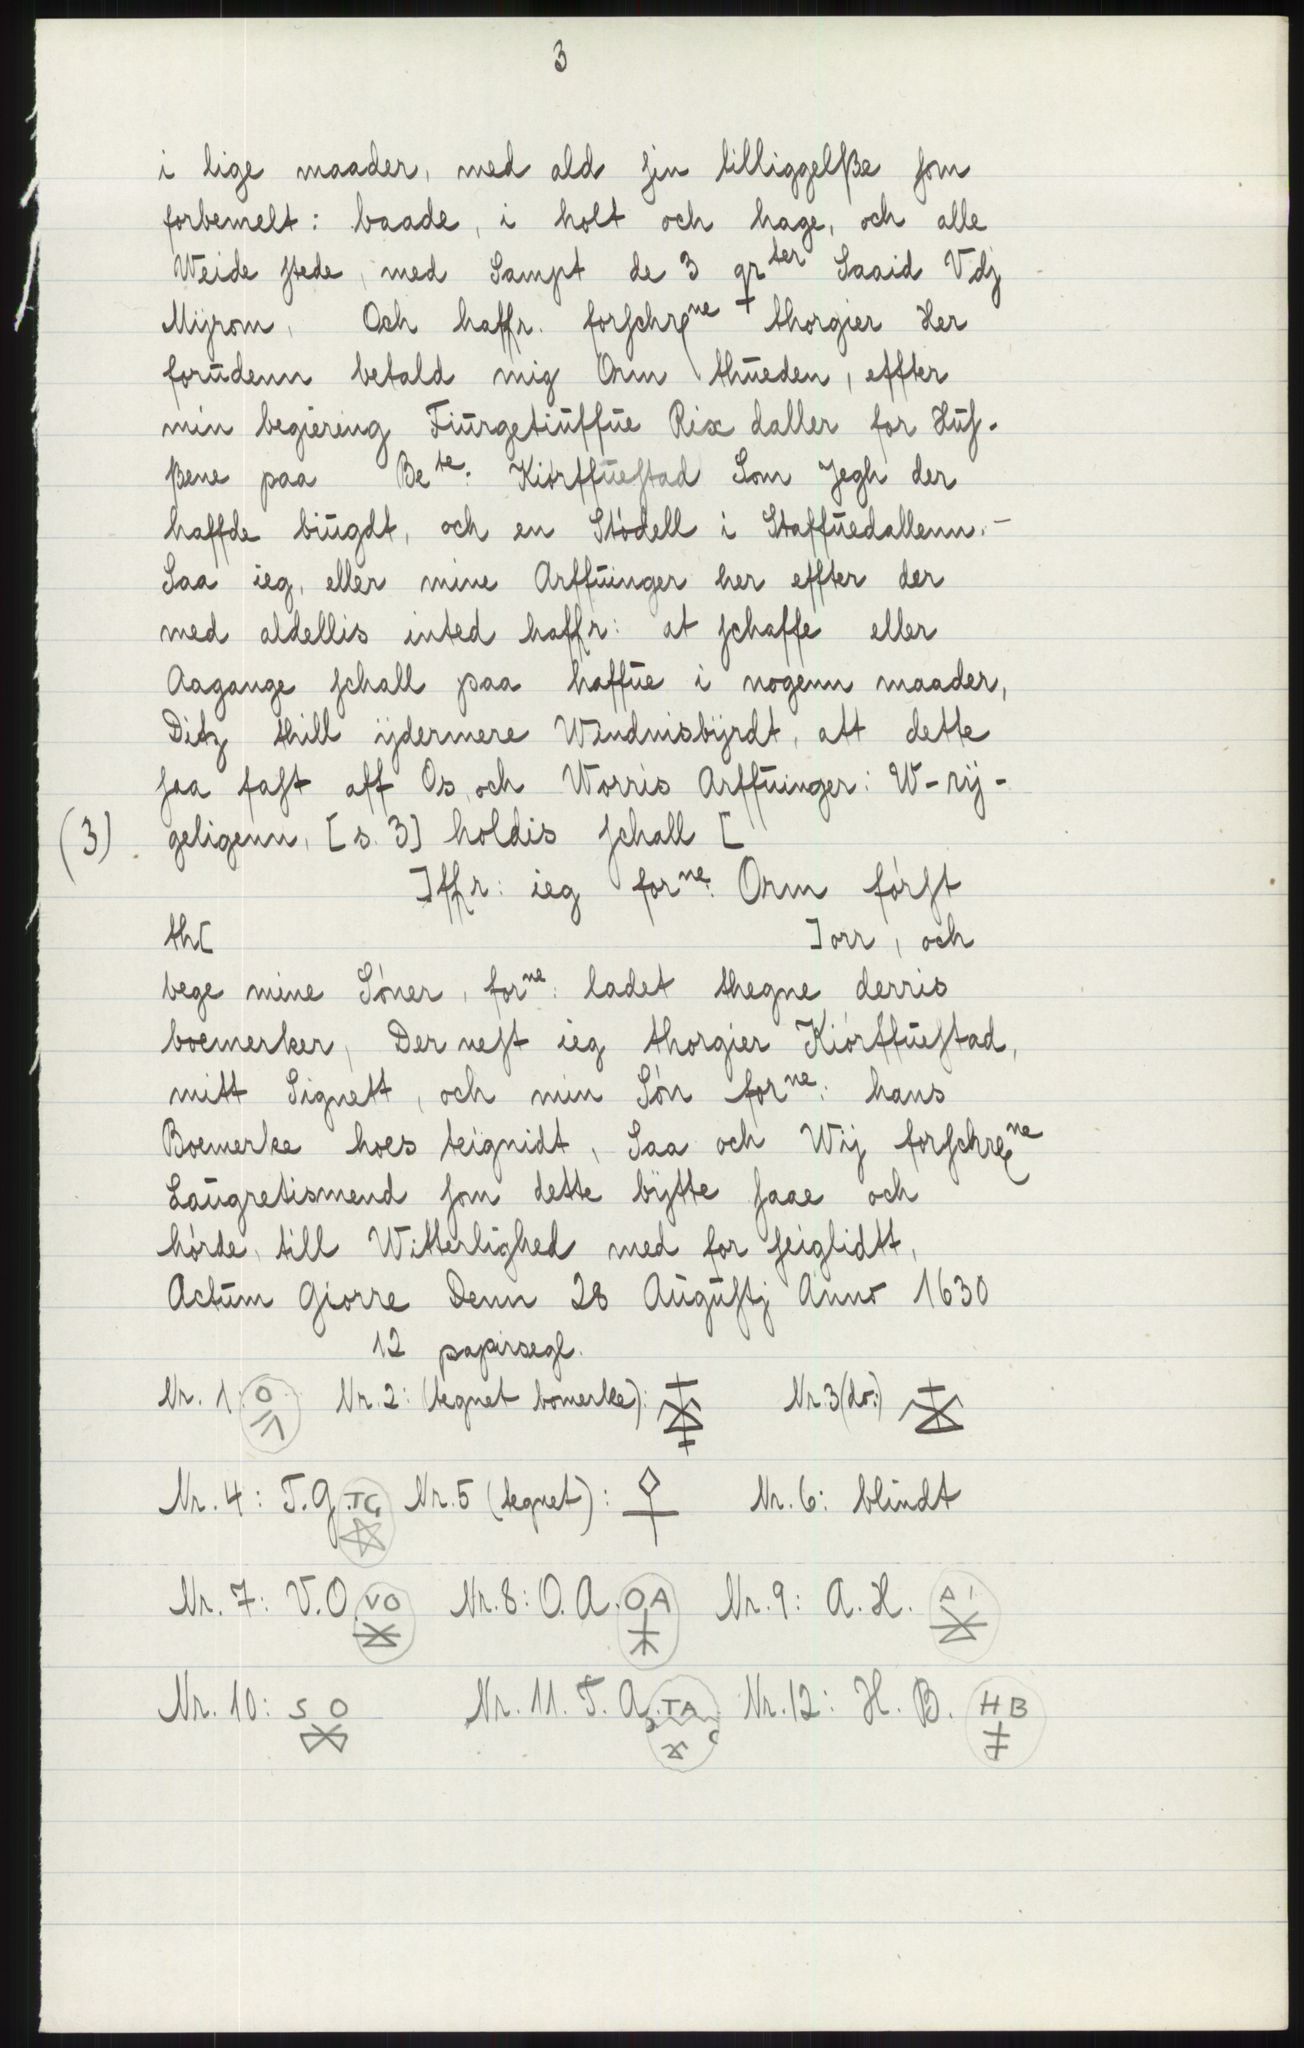 3
i lige maader, med ald ſin tilliggelße ſom
forbemelt: baade, i holt och hage, och alle
Weide ſtede, med Sampt de 3 qrter Saaid Vdj
Mÿrom, Och haffr. forſchrne + thorgier Her
forudenn betald mig Orm thueden, effter
min begiering Fiurgetiuffue Rix daller for Huſ-
ßene paa Bete: Kiórffueſtad Som Jegh der
haffde biugdt, och en Stódell i Staffuedallenn. –
Saa ieg, eller mine Arffuinger her effter der
med aldellis inted haffr: at ſchaffe eller
Aagange ſchall paa haffue i nogenn maader,
Ditz thill ijdermere Windnisbÿrdt, att dette
ſaa faſt aff Os, och Worris Arffuinger: W-rÿ-
(3) geligenn, [s. 3] holdis ſchall [
]ffr: ieg forne: Orm fórſt
th[ ]orr, och
bege mine Sóner, forne: ladet thegne derris
boemerker, Der neſt ieg thorgier Kiórffueſtad,
mitt Signett, och min Són forne: hans
Boemerke hoes teignidt, Saa och Wij forſchrne
Laugretismend ſom dette bÿtte ſaae och
hórde, till Witterlighed med for ſeiglidtt,
Actum Giorre Denn 28 Auguſtj Anno 1630
12 papirsegl.
Nr. 1: O Nr. 2: (tegnet bomerke): Nr. 3 (do:)
Nr. 4: T. G. TG Nr. 5 (tegnet): Nr. 6: blindt
Nr. 7: V. O. VO Nr. 8: O. A. OA Nr. 9: A. H.
Nr. 10: S O Nr. 11. T. A. TA Nr. 12: H. B. HB